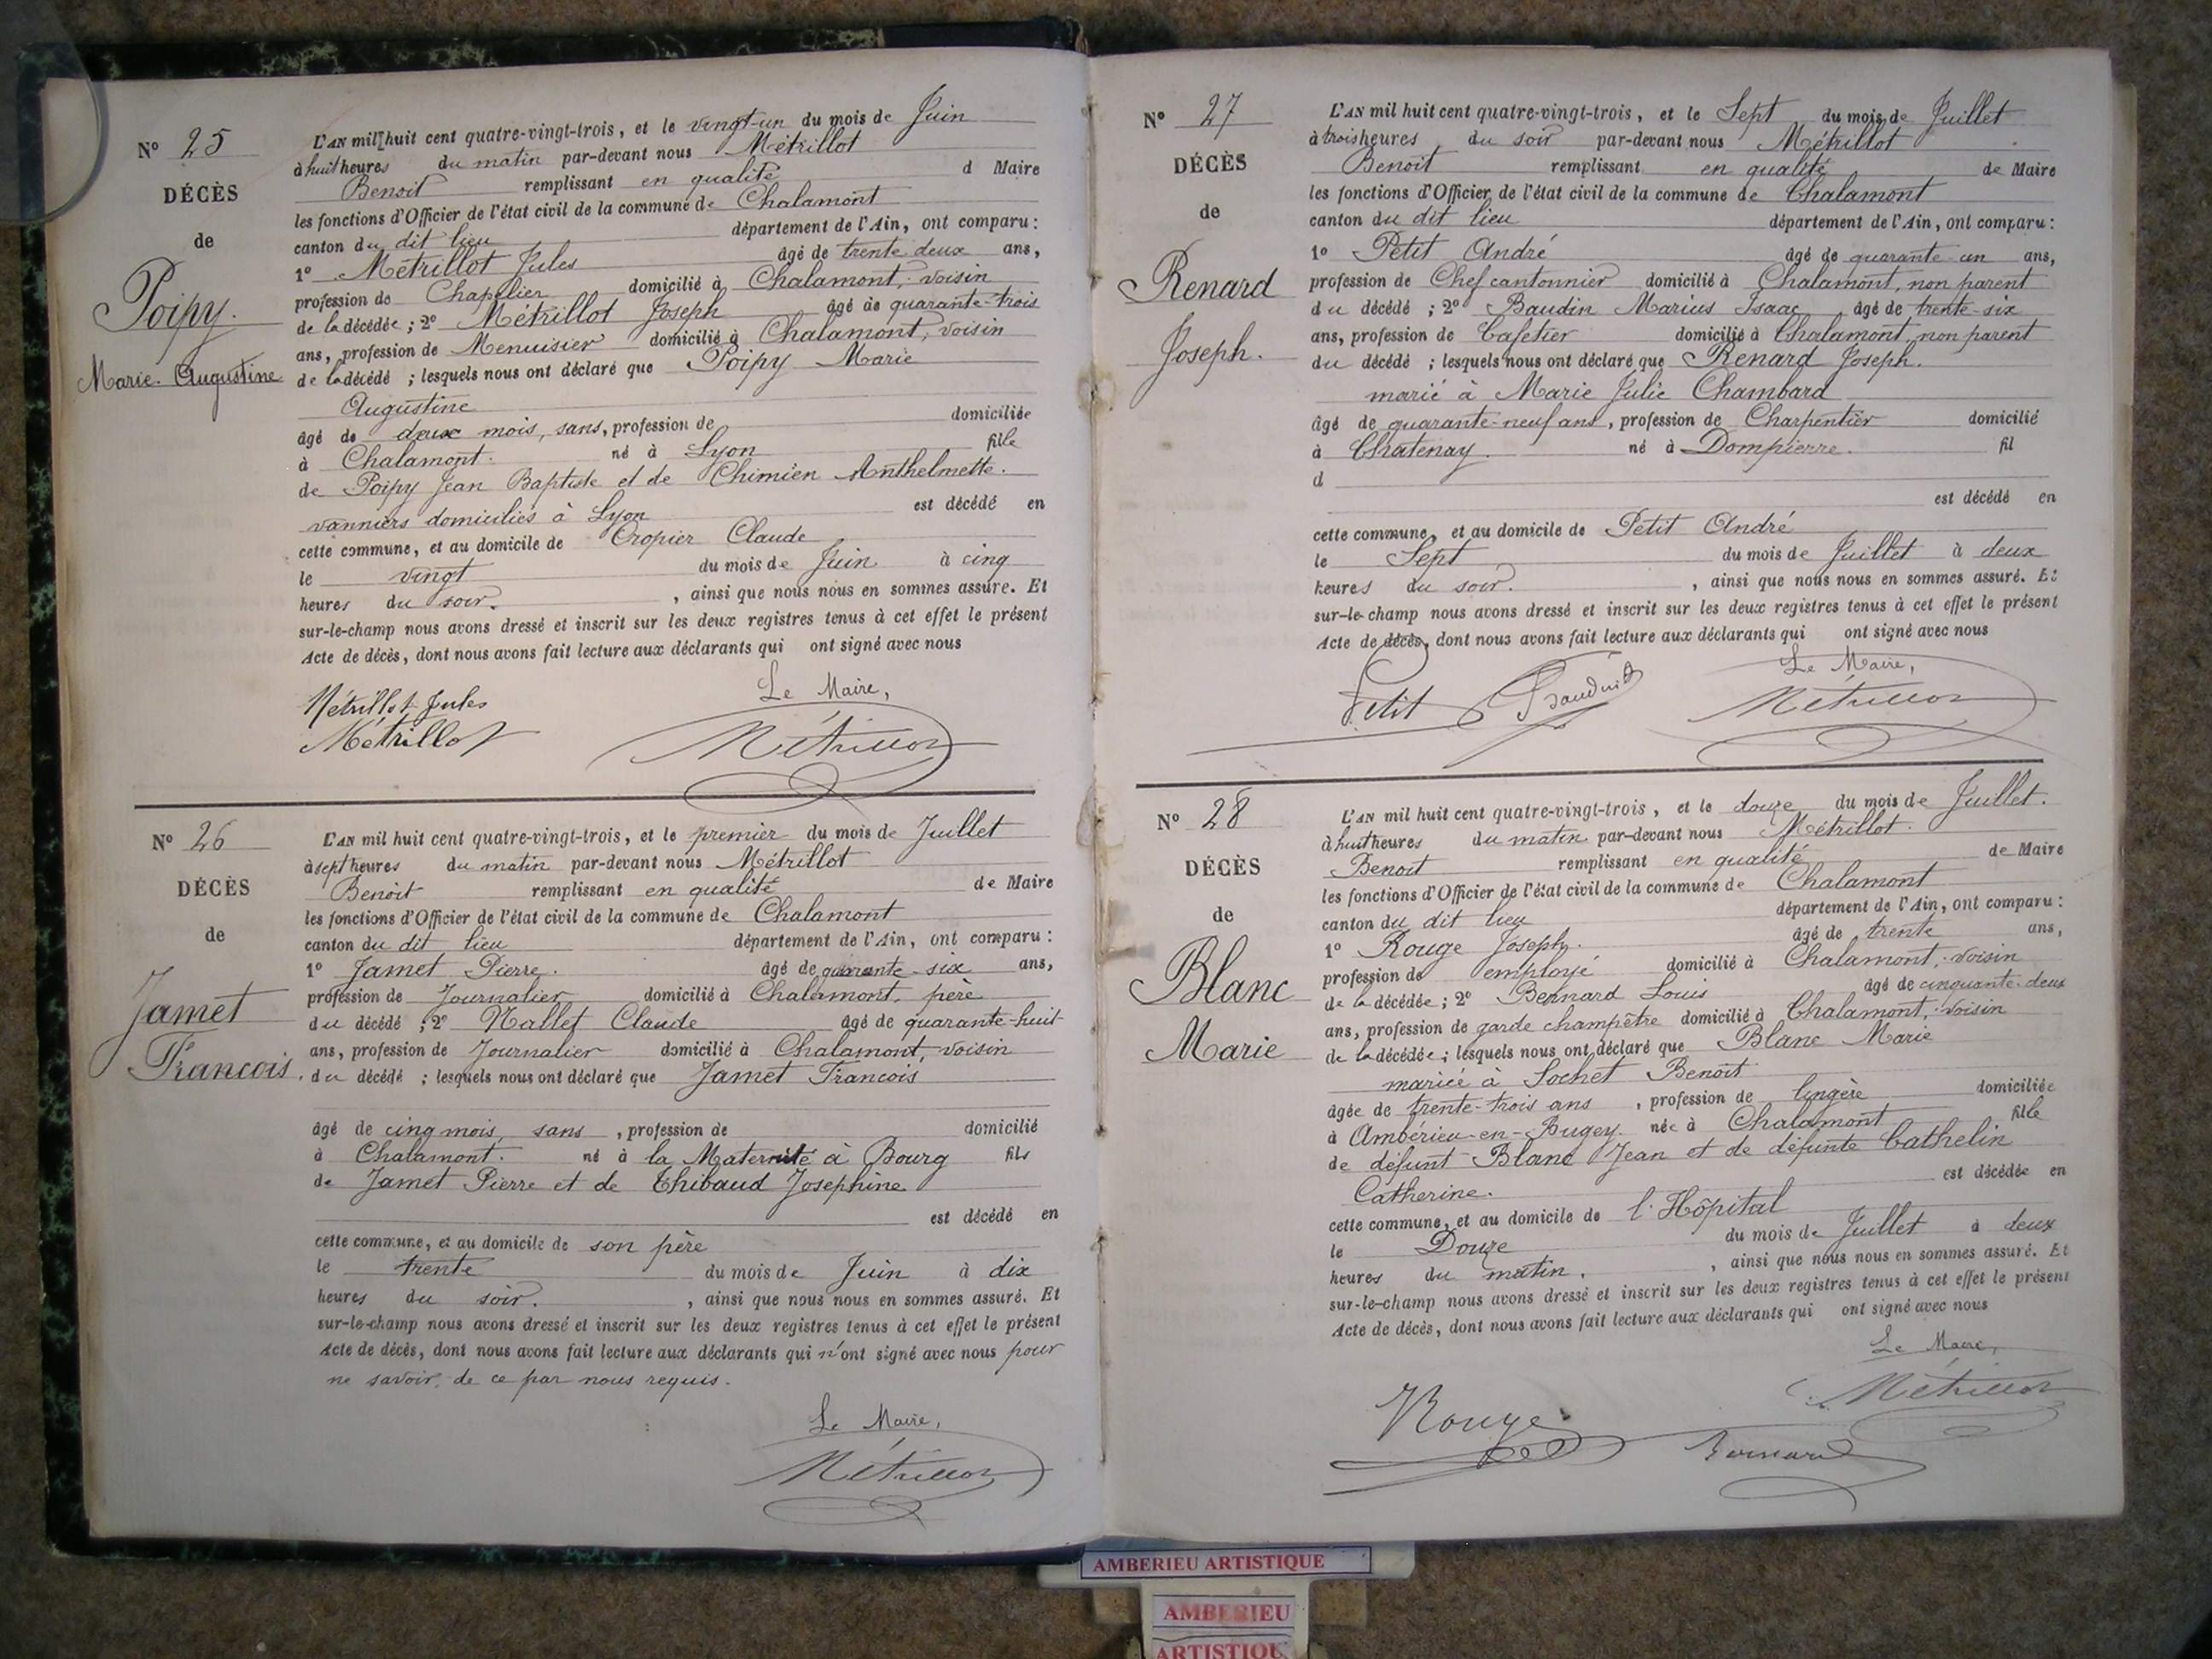 N° 25
DÉCÈS
de
Poipy.
Marie. Augustine
L'AN mil huit cent quatre-vingt-trois, et le vingt-un du mois de Juin
à huit heures du matin par-devant nous Métrillot
Benoit remplissant en qualité d Maire
les fonctions d'Officier de l'état civil de la commune de Chalamont
canton du dit lieu département de l'Ain, ont comparu:
1° Métrillot Jules âgé de trente deux ans,
profession de Chapelier domicilié à Chalamont, voisin
de la décédée; 2° Métrillot Joseph âgé de quarante-trois
ans, profession de Menuisier domicilié à Chalamont, voisin
de la décédé; lesquels nous ont déclaré que Poipy Marie
Augustine
âgé de deux mois, sans, profession de domiciliée
à Chalamont. né à Lyon fille
de Poipy Jean Baptiste et de Chimien Anthelmette.
vanniers domiciliés à Lyon est décédé en
cette commune, et au domicile de Cropier Claude
le vingt du mois de Juin à cinq
heures du soir. , ainsi que nous nous en sommes assuré. Et
sur-le-champ nous avons dressé et inscrit sur les deux registres tenus à cet effet le présent
Acte de décès, dont nous avons fait lecture aux déclarants qui ont signé avec nous
Le Maire,
Métrillot Jules
Métrillot Métrillot
N° 26
DÉCÈS
de
Jamet
Francois.
L'AN mil huit cent quatre-vingt-trois, et le premier du mois de Juillet
à sept heures du matin par-devant nous Métrillot
Benoit remplissant en qualité de Maire
les fonctions d'Officier de l'état civil de la commune de Chalamont
canton du dit lieu département de l'Ain, ont comparu:
1° Jamet Pierre. âgé de quarante-six ans,
profession de Journalier domicilié à Chalamont, père
du décédé; 2° Nallet Claude âgé de quarante-huit
ans, profession de Journalier domicilié à Chalamont, voisin
du décédé; lesquels nous ont déclaré que Jamet Francois
âgé de cinq mois, sans, profession de domicilié
à Chalamont. né à la Maternité à Bourg fils
de Jamet Pierre et de Thibaud Josephine
est décédé en
cette commune, et au domicile de son père
le trente du mois de Juin à dix
heures du soir. , ainsi que nous nous en sommes assuré. Et
sur-le-champ nous avons dressé et inscrit sur les deux registres tenus à cet effet le présent
Acte de décès, dont nous avons fait lecture aux déclarants qui n'ont signé avec nous pour
ne savoir, de ce par nous requis.
Le Maire,
Métrillot
N° 27
DÉCÈS
de
Renard
Joseph.
L'AN mil huit cent quatre-vingt-trois, et le Sept du mois de Juillet
à trois heures du soir par-devant nous Métrillot
Benoit remplissant en qualité de Maire
les fonctions d'Officier de l'état civil de la commune de Chalamont
canton du dit lieu département de l'Ain, ont comparu:
1° Petit André âgé de quarante-un ans,
profession de Chef cantonnier domicilié à Chalamont, non parent
du décédé; 2° Baudin Marius Isaac âgé de trente-six
ans, profession de Cafetier domicilié à Chalamont, non parent
du décédé; lesquels nous ont déclaré que Renard Joseph.
marié à Marie Julie Chambard
âgé de quarante-neuf ans, profession de Charpentier domicilié
à Chatenay. né à Dompierre. fil
d
est décédé en
cette commune, et au domicile de Petit André
le Sept du mois de Juillet à deux
heures du soir. , ainsi que nous nous en sommes assuré. Et
sur-le-champ nous avons dressé et inscrit sur les deux registres tenus à cet effet le présent
Acte de décès, dont nous avons fait lecture aux déclarants qui ont signé avec nous
Le Maire,
Petit Métrillot
N° 28
DÉCÈS
de
Blanc
Marie
L'AN mil huit cent quatre-vingt-trois, et le douze du mois de Juillet.
à huit heures du matin par-devant nous Métrillot.
Benoit remplissant en qualité de Maire
les fonctions d'Officier de l'état civil de la commune de Chalamont
canton du dit lieu département de l'Ain, ont comparu:
1° Rouge Joseph. âgé de trente ans,
profession de employé domicilié à Chalamont, voisin
de la décédée; 2° Bernard Louis âgé de cinquante-deux
ans, profession de garde champêtre domicilié à Chalamont, voisin
de la décédée; lesquels nous ont déclaré que Blanc Marie
mariée à Sochet Benoit
âgée de trente-trois ans, profession de lingère domiciliée
à Ambérieu-en-Bugey née à Chalamont fille
de défunt Blanc Jean et de défunte Cathelin
Catherine. est décédée en
cette commune, et au domicile de l'Hôpital
le Douze du mois de Juillet à deux
heures du matin. , ainsi que nous nous en sommes assuré. Et
sur-le-champ nous avons dressé et inscrit sur les deux registres tenus à cet effet le présent
Acte de décès, dont nous avons fait lecture aux déclarants qui ont signé avec nous
Le Maire,
Métrillot
Rouge Bernard
AMBERIEU ARTISTIQUE
AMBERIEU
ARTISTIQU